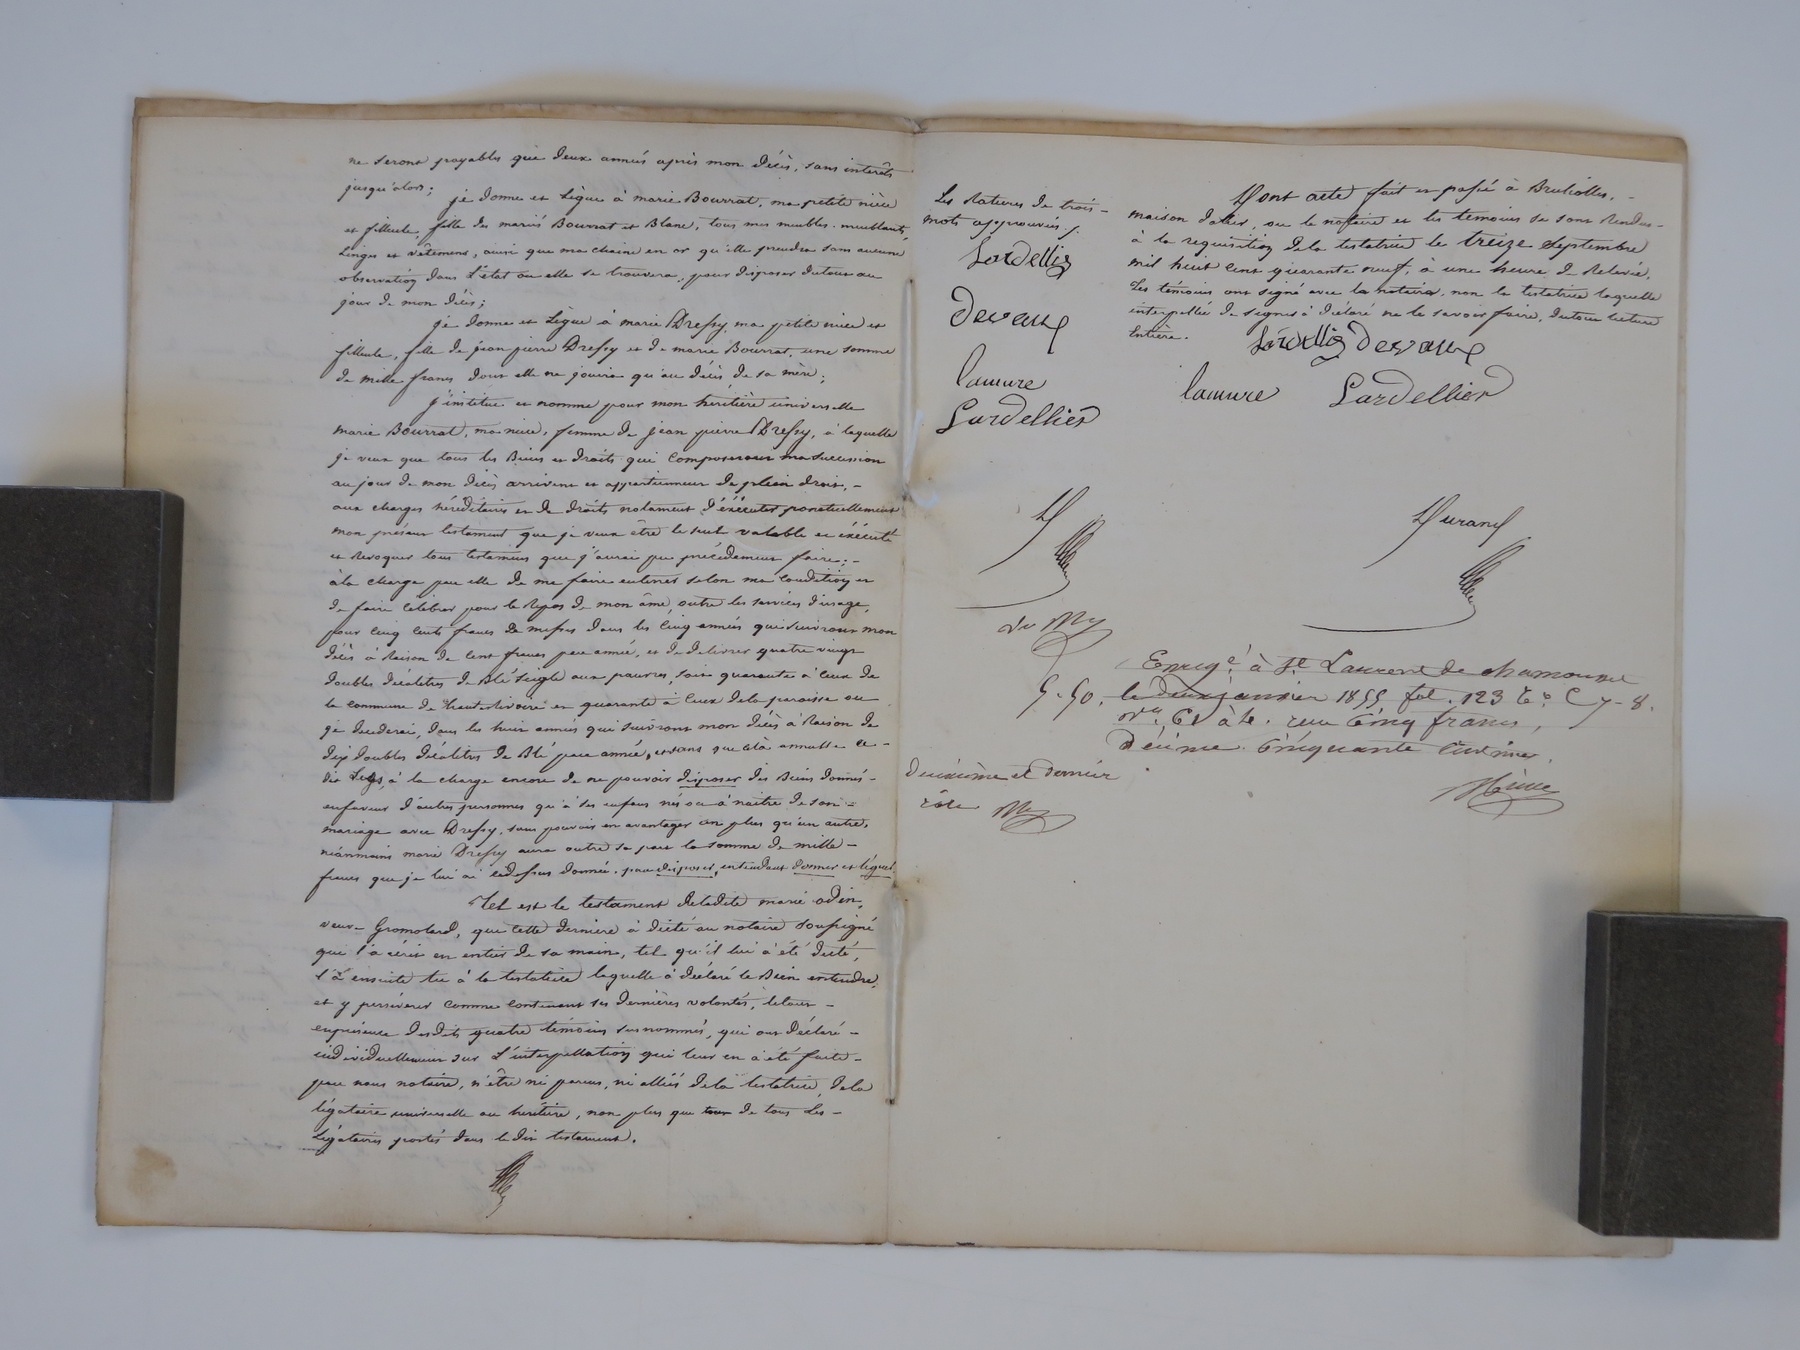 ne seront payables que deux années après mon décès, sans intérêts
jusqu'alors;
je donne et Lègue à marie Bourrat, ma petite nièce
et filleule, fille des mariés Bourrat et Blanc, tous mes meubles meublants,
Linges et vêtemens, ainsi que ma chaine en or qu'elle prendra sans aucune
observation dans l'état où elle se trouvera, pour disposer du tout au
jour de mon décès;
je donne et Lègue à marie Dressy, ma petite nièce et
filleule, fille de jean pierre Dressy et de marie Bourrat, une somme
de mille francs dont elle ne jouira qu'au décès de sa mère;
j'institue et nomme pour mon héritière universelle
marie Bourrat, ma nièce, femme de jean pierre Dressy, à laquelle
je veux que tous les Biens et droits qui composeront ma succession
au jour de mon décès arrivent et appartiennent de plein droit, -
aux charges héréditaires et de droits notament d'éxécuter ponctuellement
mon présent testament que je veux être le seul valable et éxécuté
et révoquer tous testamens que j'aurai pu précédemment faire; -
à la charge par elle de me faire enterrer selon ma condition et
de faire célébrer pour le Repos de mon âme, outre les services d'usage,
pour cinq cents francs de messes dans les cinq années qui suivront mon
décès à Raison de cent francs par année, et de délivrer quatre vingt
doubles décalitres de Blé seigle aux pauvres, soit quarante à ceux de
la commune de haute Rivoire et quarante à ceux de la paroisse où
je décèderai, dans les huit années qui suivront mon décès à Raison de
dix doubles décalitres de Blé par année, et sans que cela annulle ce -
dit Legs, à la charge encore de ne pouvoir disposer des Biens donnés -
enfaveur d'autres personnes qu'à ses enfans nés ou à naitre de son -
mariage avec Dressy, sans pouvoir en avantager un plus qu'un autre,
néanmoins marie Dressy aura outre sa part la somme de mille -
francs que je lui ai cidessus donnée. par disposer, entendant donner et léguer.
Tel est le testament de ladite marie odin,
veuve Gromolard, que cette dernière à dicté au notaire soussigné
qui l'a écrit en entier de sa main, tel qu'il lui à été dicté,
l'à ensuite lu à la testatrice laquelle à déclaré le Bien entendre,
et y persévérer comme contenant ses dernières volontés, le tout -
enprésence desdits quatre témoins susnommés, qui ont déclaré -
individuellement sur L'interpellation qui leur en à été faite -
par nous notaire, n'être ni parens, ni alliés de la testatrice, de la
légataire universelle ou héritière, non plus que de tous Les -
Légataires portés dans le dit testament.
Les Ratures de trois -
mots approuvés /.
Lardellier
devaux
lamure
Lardellier
D
Dont acte fait et passé à Brullioles, -
maison d'odin, où le notaire et les témoins se sont Rendus -
à la requisition de la testatrice le treize septembre
mil huit cent quarante neuf, à une heure de Relevée,
Les témoins ont signé avec le notaire, non la testatrice laquelle
interpellée de signer à déclaré ne le savoir faire, du tout lecture
Entière.
Lardellier devaux
lamure Lardellier
Durand
Enreg.é à St Laurent de chamousset
5.50. le deux janvier 1855 fol. 123 Ro C 7-8.
reçu Cinq francs,
Décime Cinquante Centimes.
Deuxième et dernier
rôle